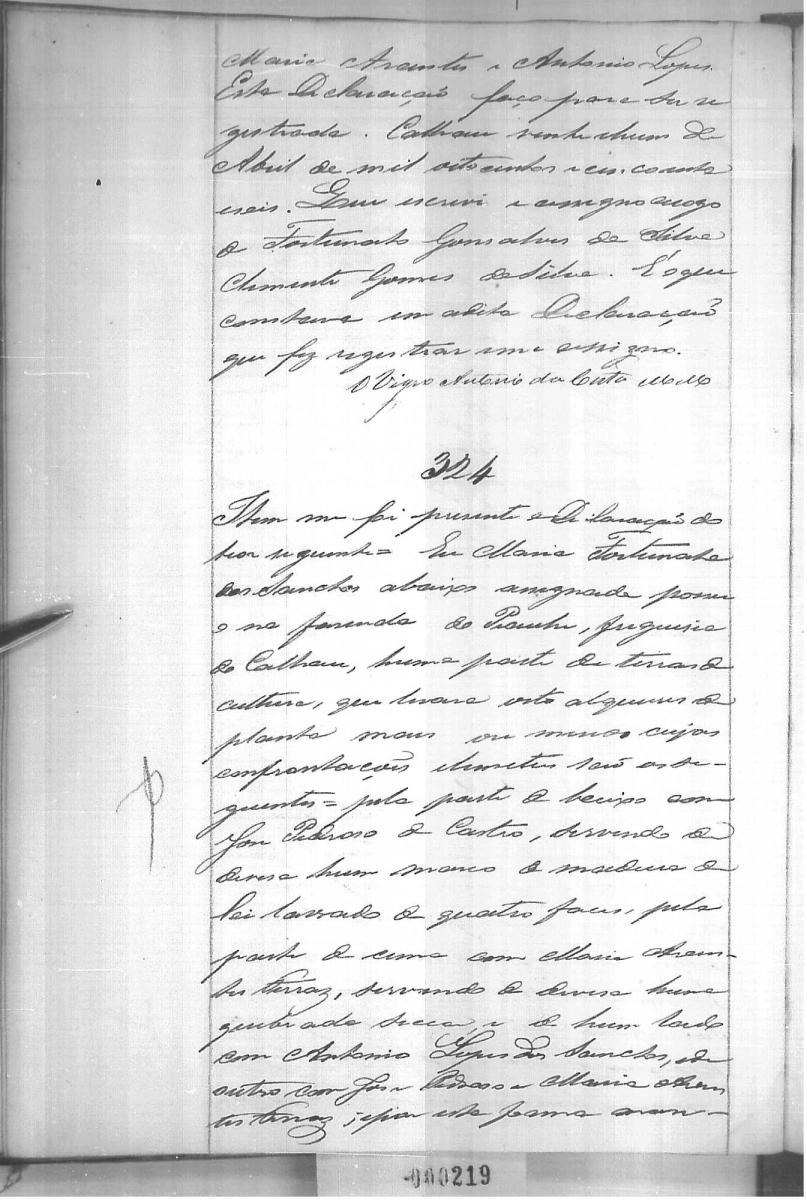 Maria Arantes e Antonio Lopes.
Esta Declaração faço para ser re
gistrada. Calhau vinte ehum de
Abril de mil oito centos e cincoenta
eseis. Que escrevi e assigno arogo
de Fortunato Gonsalves da Silva
Clemente Gomes da Silva. E' o que
constava em adita Declaração
que fiz registrar e me assigno.
O Vigro Antonio da Costa
324
Item me foi presente a Declaração do
teor seguinte = Eu Maria Fortunata
dos Sanctos abaixo assignada possu
o na fazenda do Piauhi, freguesia
do Calhau, huma parte de terras de
cultura, que levara oito alqueires de
planta mais ou menos cujas
confrontações elimetes são os se-
guentes = pela parte de baixo com
Jose Pedroso de Castro, servendo de
devesa hum marco de madeira de
lei lavrado de quatro faces, pela
parte de cima com Maria Aran-
tes Ferraz, servendo de devesa huma
quebrada secca, e de hum lado
com Antonio Lopes dos Sanctos, ede
outro com Jose Pedroso e Maria Aran
tes Ferraz; epor esta forma man-
000219